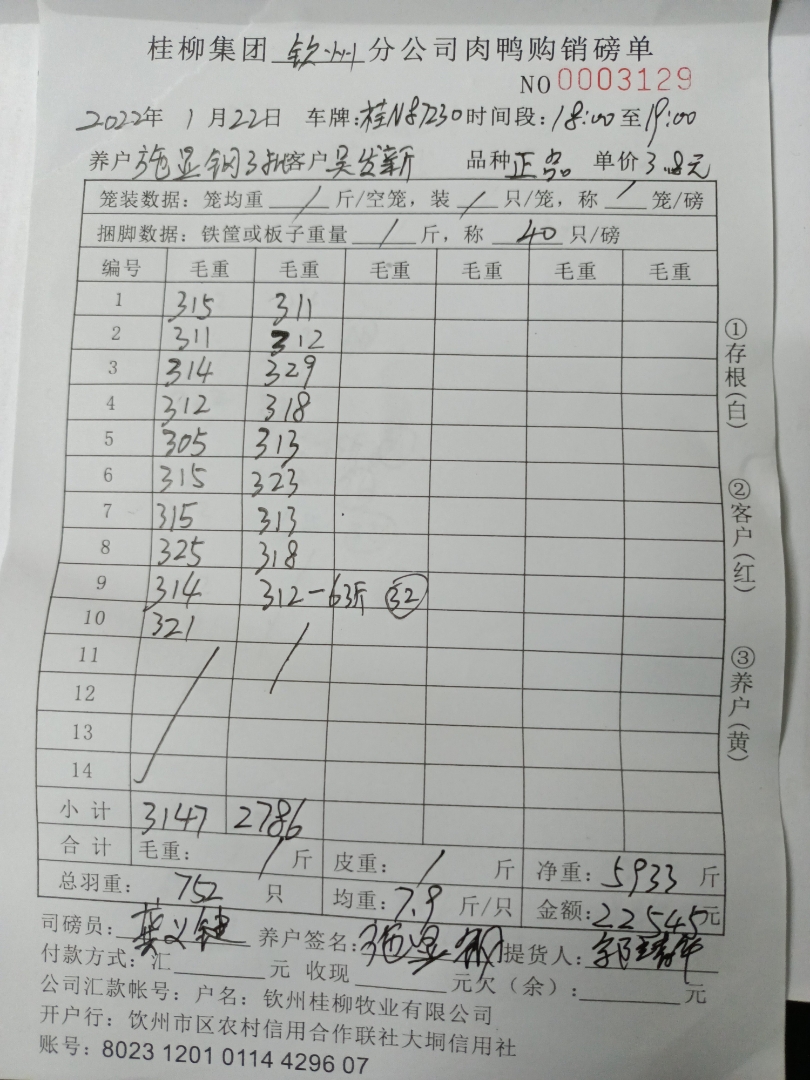 桂柳集团 钦州 分公司肉鸭购销磅单
NO 0003129
2022年 1月22日 车牌:桂N87230 时间段:18:00至19:00
养户 施显钢3批 客户 吴发新 品种 正品 单价 3.8元
笼装数据: 笼均重 / 斤/空笼, 装 / 只/笼, 称 / 笼/磅
捆脚数据: 铁筐或板子重量 / 斤, 称 40 只/磅
编号 毛重 毛重 毛重 毛重 毛重 毛重
1 315 311
2 311 312
3 314 329
4 312 318
5 305 313
6 315 323
7 315 313
8 325 318
9 314 312-63斤 32
10 321 /
11 /
12
13
14
小计 3147 2786
合计 毛重: / 斤 皮重: / 斤 净重: 5933 斤
总羽重: 752 只 均重: 7.9 斤/只 金额: 22545元
司磅员: 养户签名: 施显钢 提货人:
付款方式: 汇 元 收现 元欠(余): 元
公司汇款帐号: 户名: 钦州桂柳牧业有限公司
开户行: 钦州市区农村信用合作联社大垌信用社
账号: 8023 1201 0114 4296 07
①存根(白)
②客户(红)
③养户(黄)